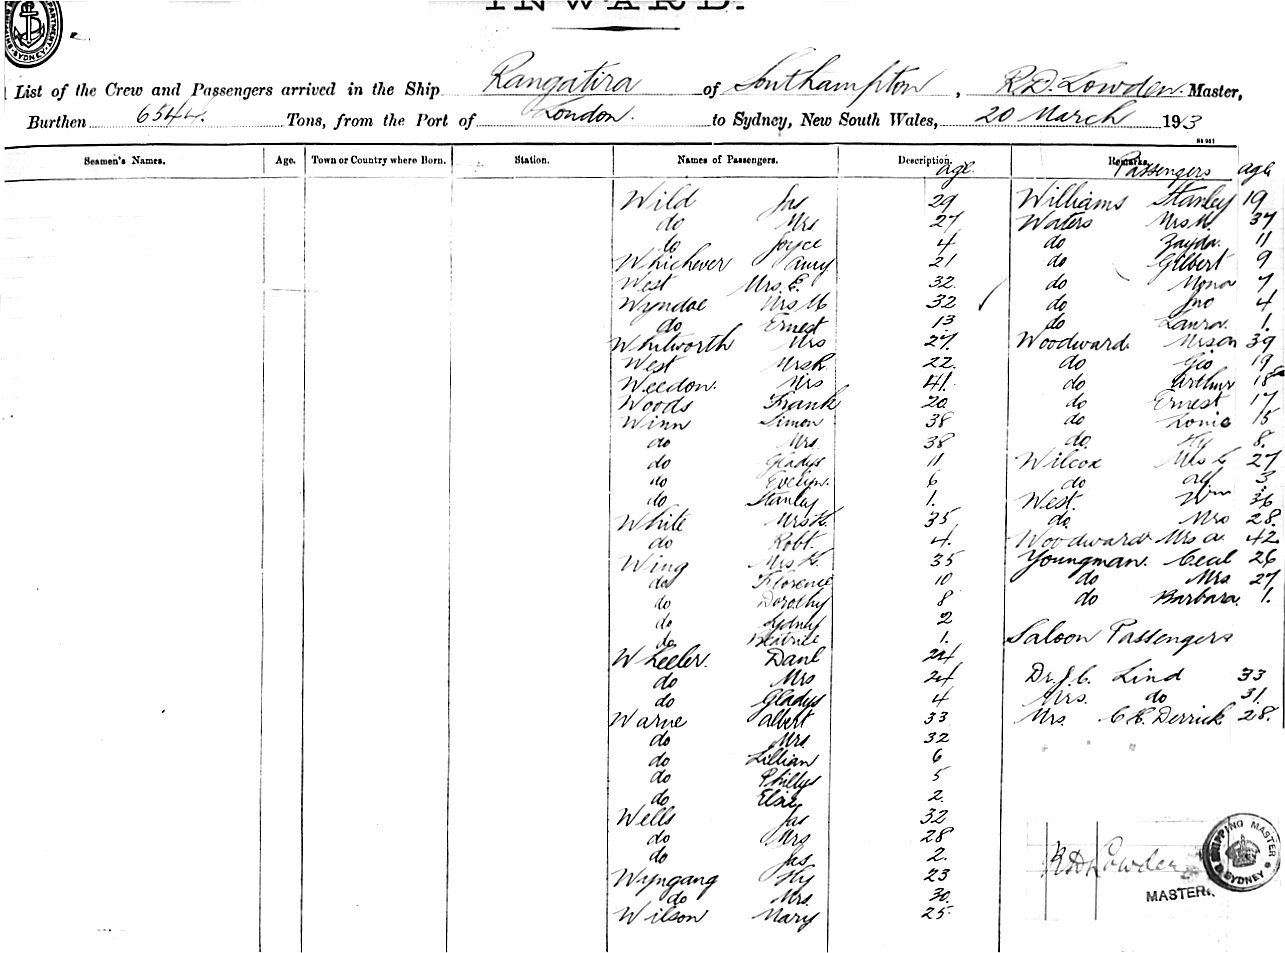 INWARD.
List of the Crew and Passengers arrived in the Ship Rangatira of Southampton, R.D. Lowden. Master,
Burthen 6544. Tons, from the Port of London. to Sydney, New South Wales, 20 March 1913
Seamen's Names. Age. Town or Country where Born. Station. Names of Passengers. Description. Remarks.
age Passengers age
Wild Jas 29
do Mrs 27
do Joyce 4
Whichever Amy 21
West Mrs. E. 32
Wyndoe Mrs M 32
do Ernest 13
Whitworth Mrs 27.
West Mrs R. 22.
Weedon. Mrs 41.
Woods Frank 20
Winn Simon 38
do Mrs 38
do Gladys 11
do Evelyn. 6
do Stanley 1.
White Mrs 35
do Robt. 4.
Wing Mrs 35
do Florence 10
do Dorothy 8
do Sydney 2
do Beatrice 1.
Wheeler. Danl 24
do Mrs 24
do Gladys 4
Warne Albert 33
do Mrs 32
do Lillian 6
do Phillys 5
do Elsie 2.
Wells Jas 32
do Mrs 28
do Jas 2.
Wyngang Hy 23
do Mrs. 30.
Wilson Mary 25
Williams Stanley 19
Waters Mrs M. 37
do Zayda. 11
do Gilbert 9
do Mona 7
do Jno 4
do Laura. 1.
Woodward. 39
do Geo 19
do Arthur 18
do Ernest 17
do 15
do Hy 8.
Wilcox Mrs 27
do Alf 3
West. Wm 36
do. Mrs 28.
Woodward Mrs a. 42.
Youngman. Cecil 26
do Mrs 27
do Barbara. 1.
Saloon Passengers
Dr. J. C. Lind 33
Mrs. do 31.
Mrs C. H. Derrick 28.
RD Lowden
MASTER.
SHIPPING MASTER
SYDNEY